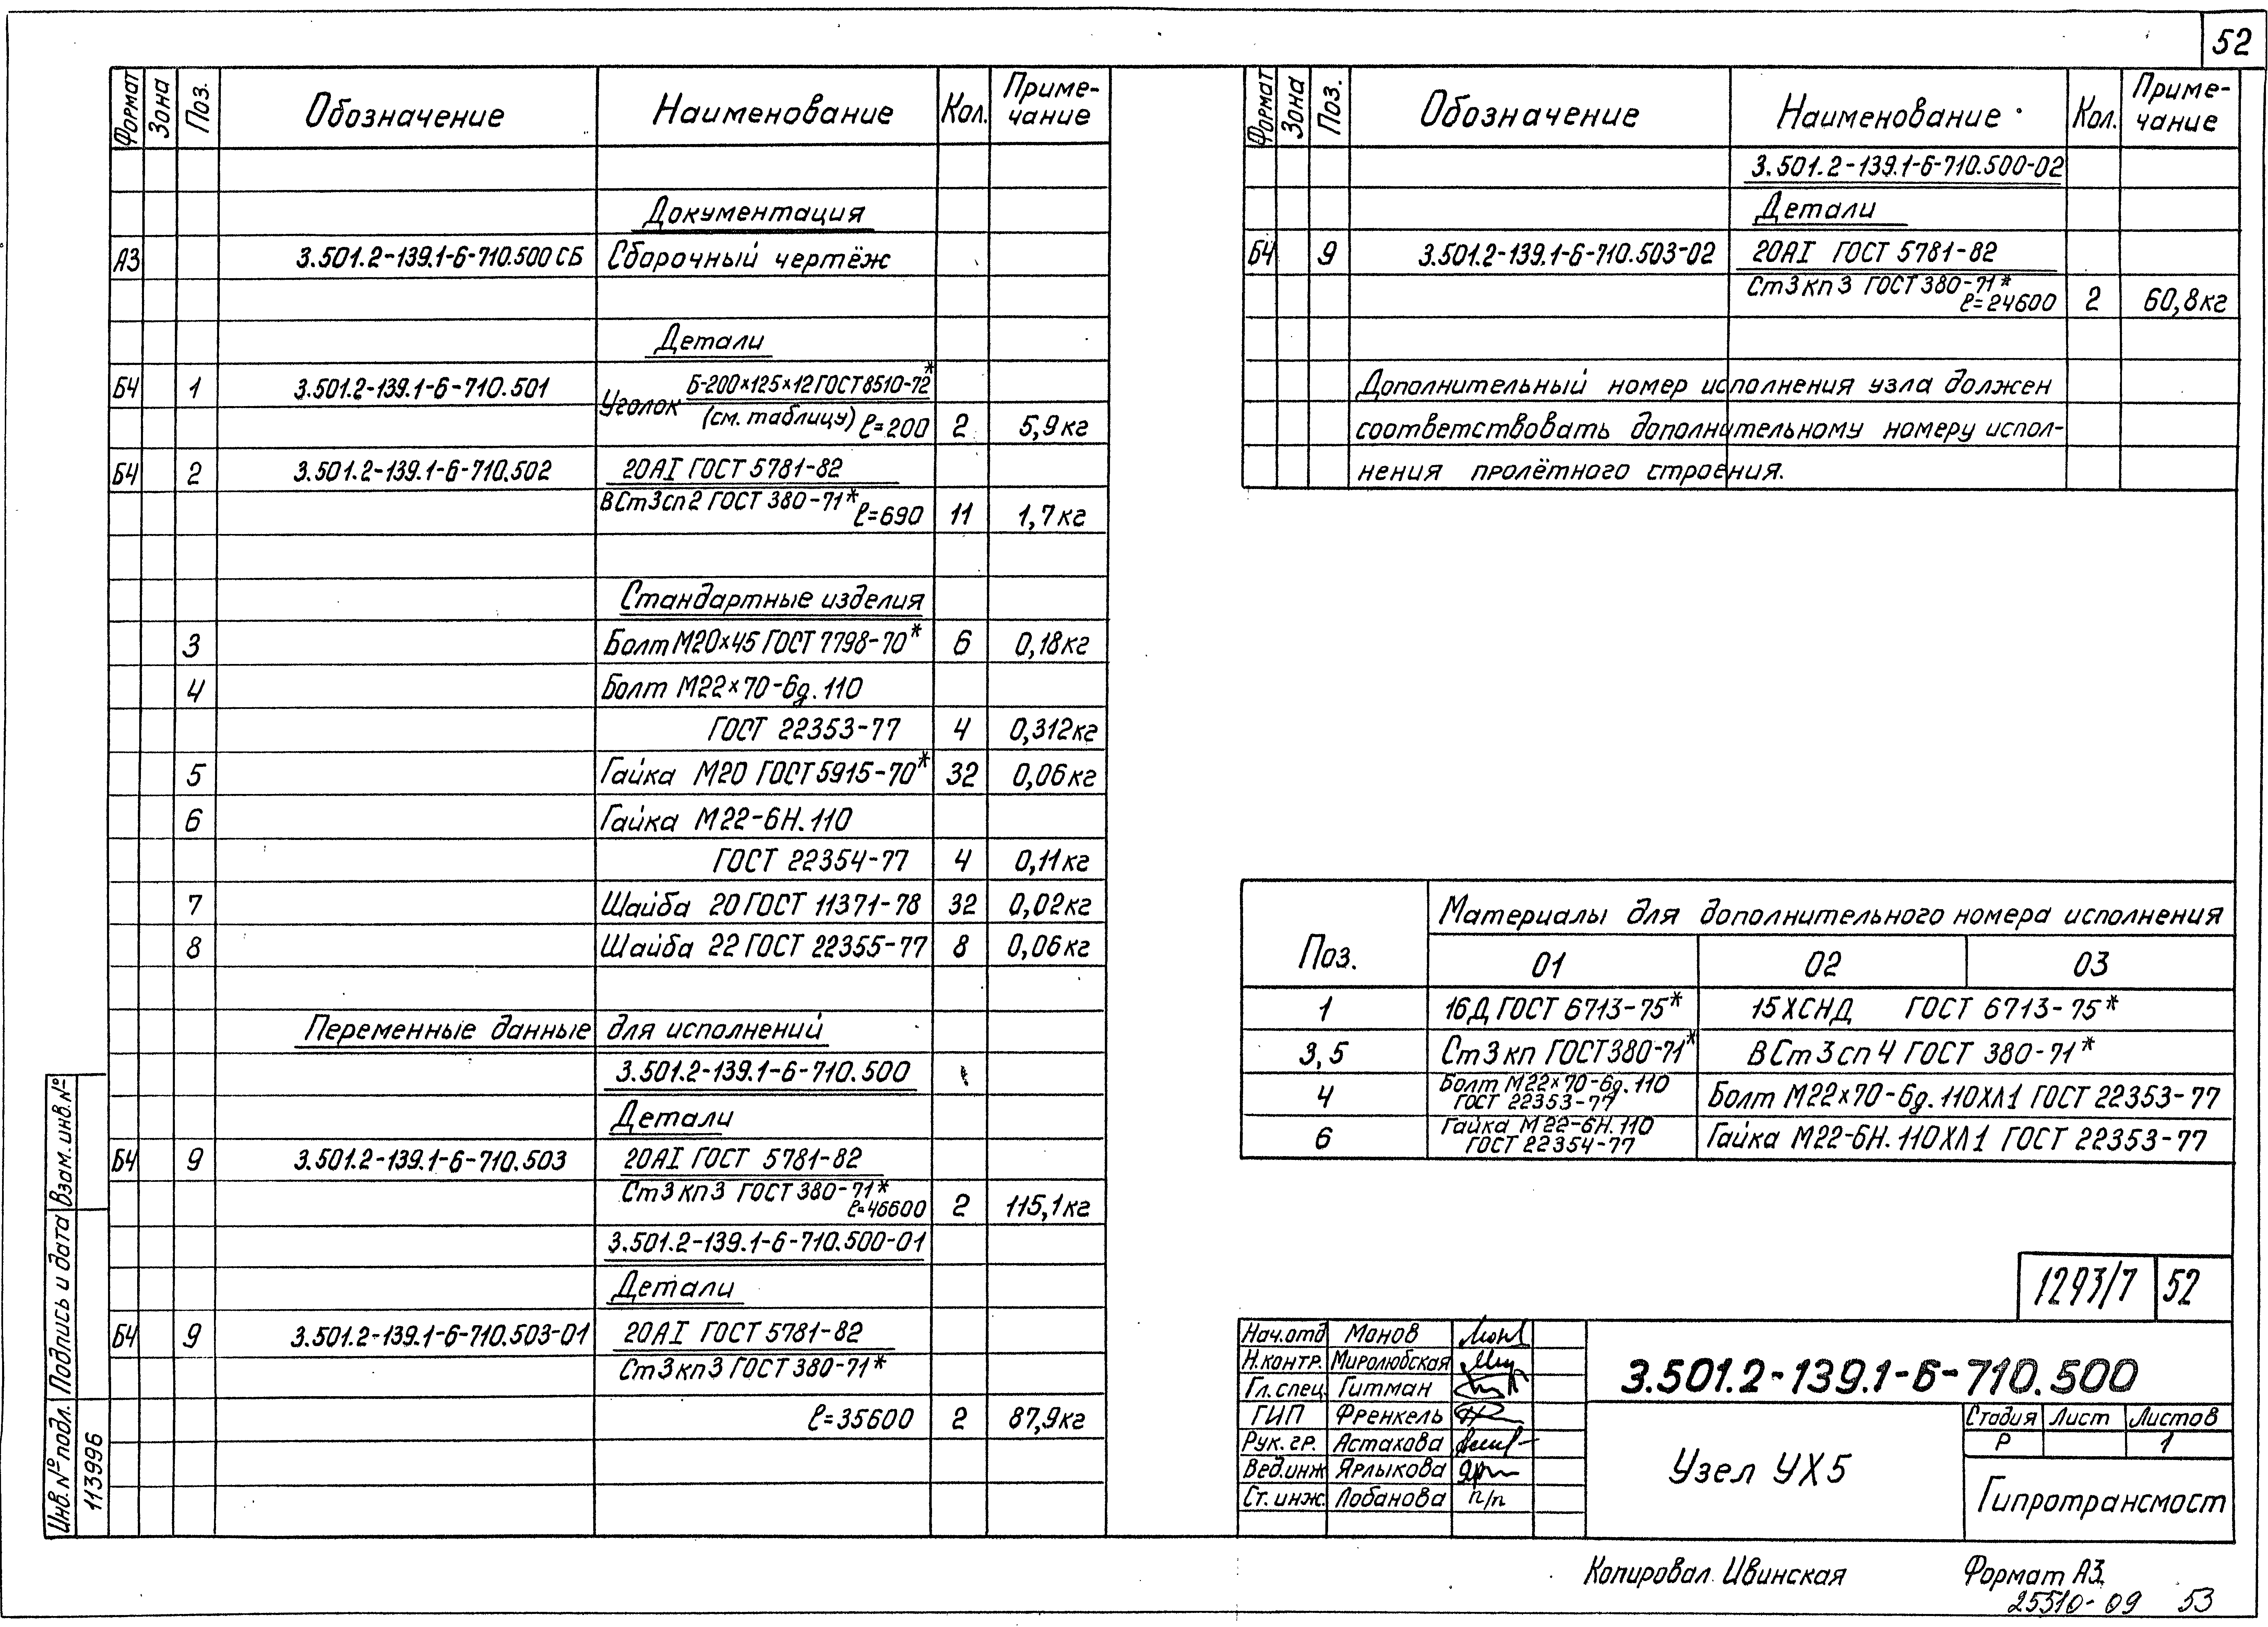 52
Формат Зона Поз. Обозначение Наименование Кол. Приме-чание
Документация
А3 3.501.2-139.1-6-710.500 СБ Сборочный чертёж
Детали
БЧ 1 3.501.2-139.1-6-710.501 Уголок Б-200×125×12 ГОСТ 8510-72*
(см. таблицу) ℓ=200 2 5,9 кг
БЧ 2 3.501.2-139.1-6-710.502 20АI ГОСТ 5781-82
ВСт3сп2 ГОСТ 380-71* ℓ=690 11 1,7 кг
Стандартные изделия
3 Болт М20×45 ГОСТ 7798-70* 6 0,18 кг
4 Болт М22×70-6g.110
ГОСТ 22353-77 4 0,312 кг
5 Гайка М20 ГОСТ 5915-70* 32 0,06 кг
6 Гайка М22-6Н.110
ГОСТ 22354-77 4 0,11 кг
7 Шайба 20 ГОСТ 11371-78 32 0,02 кг
8 Шайба 22 ГОСТ 22355-77 8 0,06 кг
Переменные данные для исполнений
3.501.2-139.1-6-710.500
Детали
БЧ 9 3.501.2-139.1-6-710.503 20АI ГОСТ 5781-82
Ст3кп3 ГОСТ 380-71* ℓ=46600 2 115,1 кг
3.501.2-139.1-6-710.500-01
Детали
БЧ 9 3.501.2-139.1-6-710.503-01 20АI ГОСТ 5781-82
Ст3кп3 ГОСТ 380-71*
ℓ=35600 2 87,9 кг
Инв.№ подл. Подпись и дата Взам.инв.№
113996
Формат Зона Поз. Обозначение Наименование Кол. Приме-чание
3.501.2-139.1-6-710.500-02
Детали
БЧ 9 3.501.2-139.1-6-710.503-02 20АI ГОСТ 5781-82
Ст3кп3 ГОСТ 380-71* ℓ=24600 2 60,8 кг
Дополнительный номер исполнения узла должен
соответствовать дополнительному номеру испол-
нения пролётного строения.
Поз. Материалы для дополнительного номера исполнения
01 02 03
1 16Д ГОСТ 6713-75* 15ХСНД ГОСТ 6713-75*
3,5 Ст3кп ГОСТ 380-71* ВСт3сп4 ГОСТ 380-71*
4 Болт М22×70-6g.110 ГОСТ 22353-77 Болт М22×70-6g.110ХЛ1 ГОСТ 22353-77
6 Гайка М22-6Н.110 ГОСТ 22354-77 Гайка М22-6Н.110ХЛ1 ГОСТ 22353-77
1293/7 52
Нач.отд Монов
Н.контр. Миролюбская
Гл.спец. Гитман
ГИП Френкель
Рук. гр. Астахова
Вед.инж Ярлыкова
Ст. инж. Лобанова п/п
3.501.2-139.1-6-710.500
Узел УХ5
Стадия Лист Листов
Р 1
Гипротрансмост
Копировал Ивинская Формат А3
25510-09 53